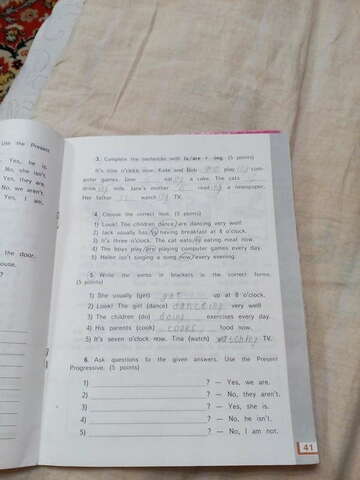 Use the Present
Yes, he is.
No, she isn't.
Yes, they are.
No, we aren't.
Yes, I am.
the door.
ouse.
3. Complete the sentences with is/are + -ing. (5 points)
It's nine o'clock now. Kate and Bob play ing com-
puter games. Dew eat a cake. The cats
drink milk. Jane's mother read a newspaper.
Her father watch TV.
4. Choose the correct item. (5 points)
1) Look! The children dance/are dancing very well!
2) Jack usually has/is having breakfast at 8 o'clock.
3) It's three o'clock. The cat eats/is eating meat now.
4) The boys play/are playing computer games every day.
5) Helen isn't singing a song now/every evening.
5. Write the verbs in brackets in the correct forms.
(5 points)
1) She usually (get) get up at 8 o'clock.
2) Look! The girl (dance) dancing very well!
3) The children (do) doing exercises every day.
4) His parents (cook) cooks food now.
5) It's seven o'clock now. Tina (watch) watching TV.
6. Ask questions to the given answers. Use the Present
Progressive. (5 points)
1) ? — Yes, we are.
2) ? — No, they aren't.
3) ? — Yes, she is.
4) ? — No, he isn't.
5) ? — No, I am not.
41